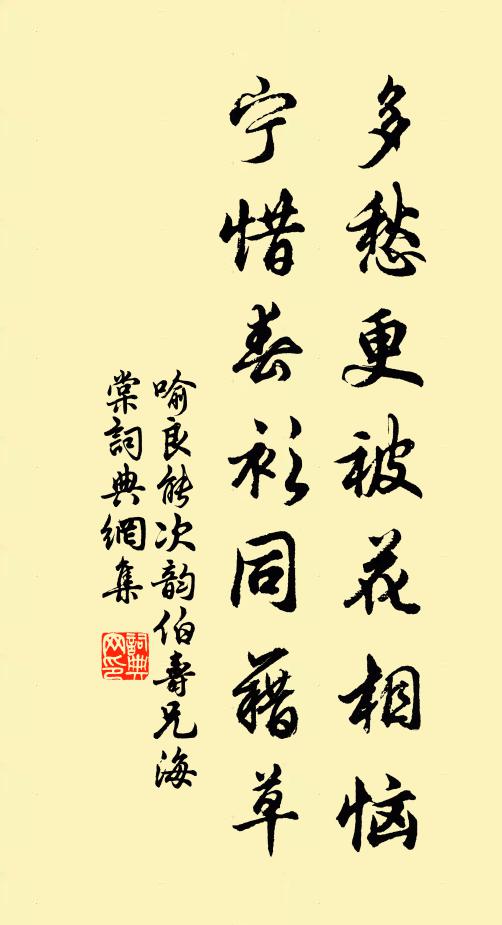 多愁更被花相恼
宁惜春衫同藉草
喻良能次韵伯寿兄海
棠詞典網集
詞典
网印